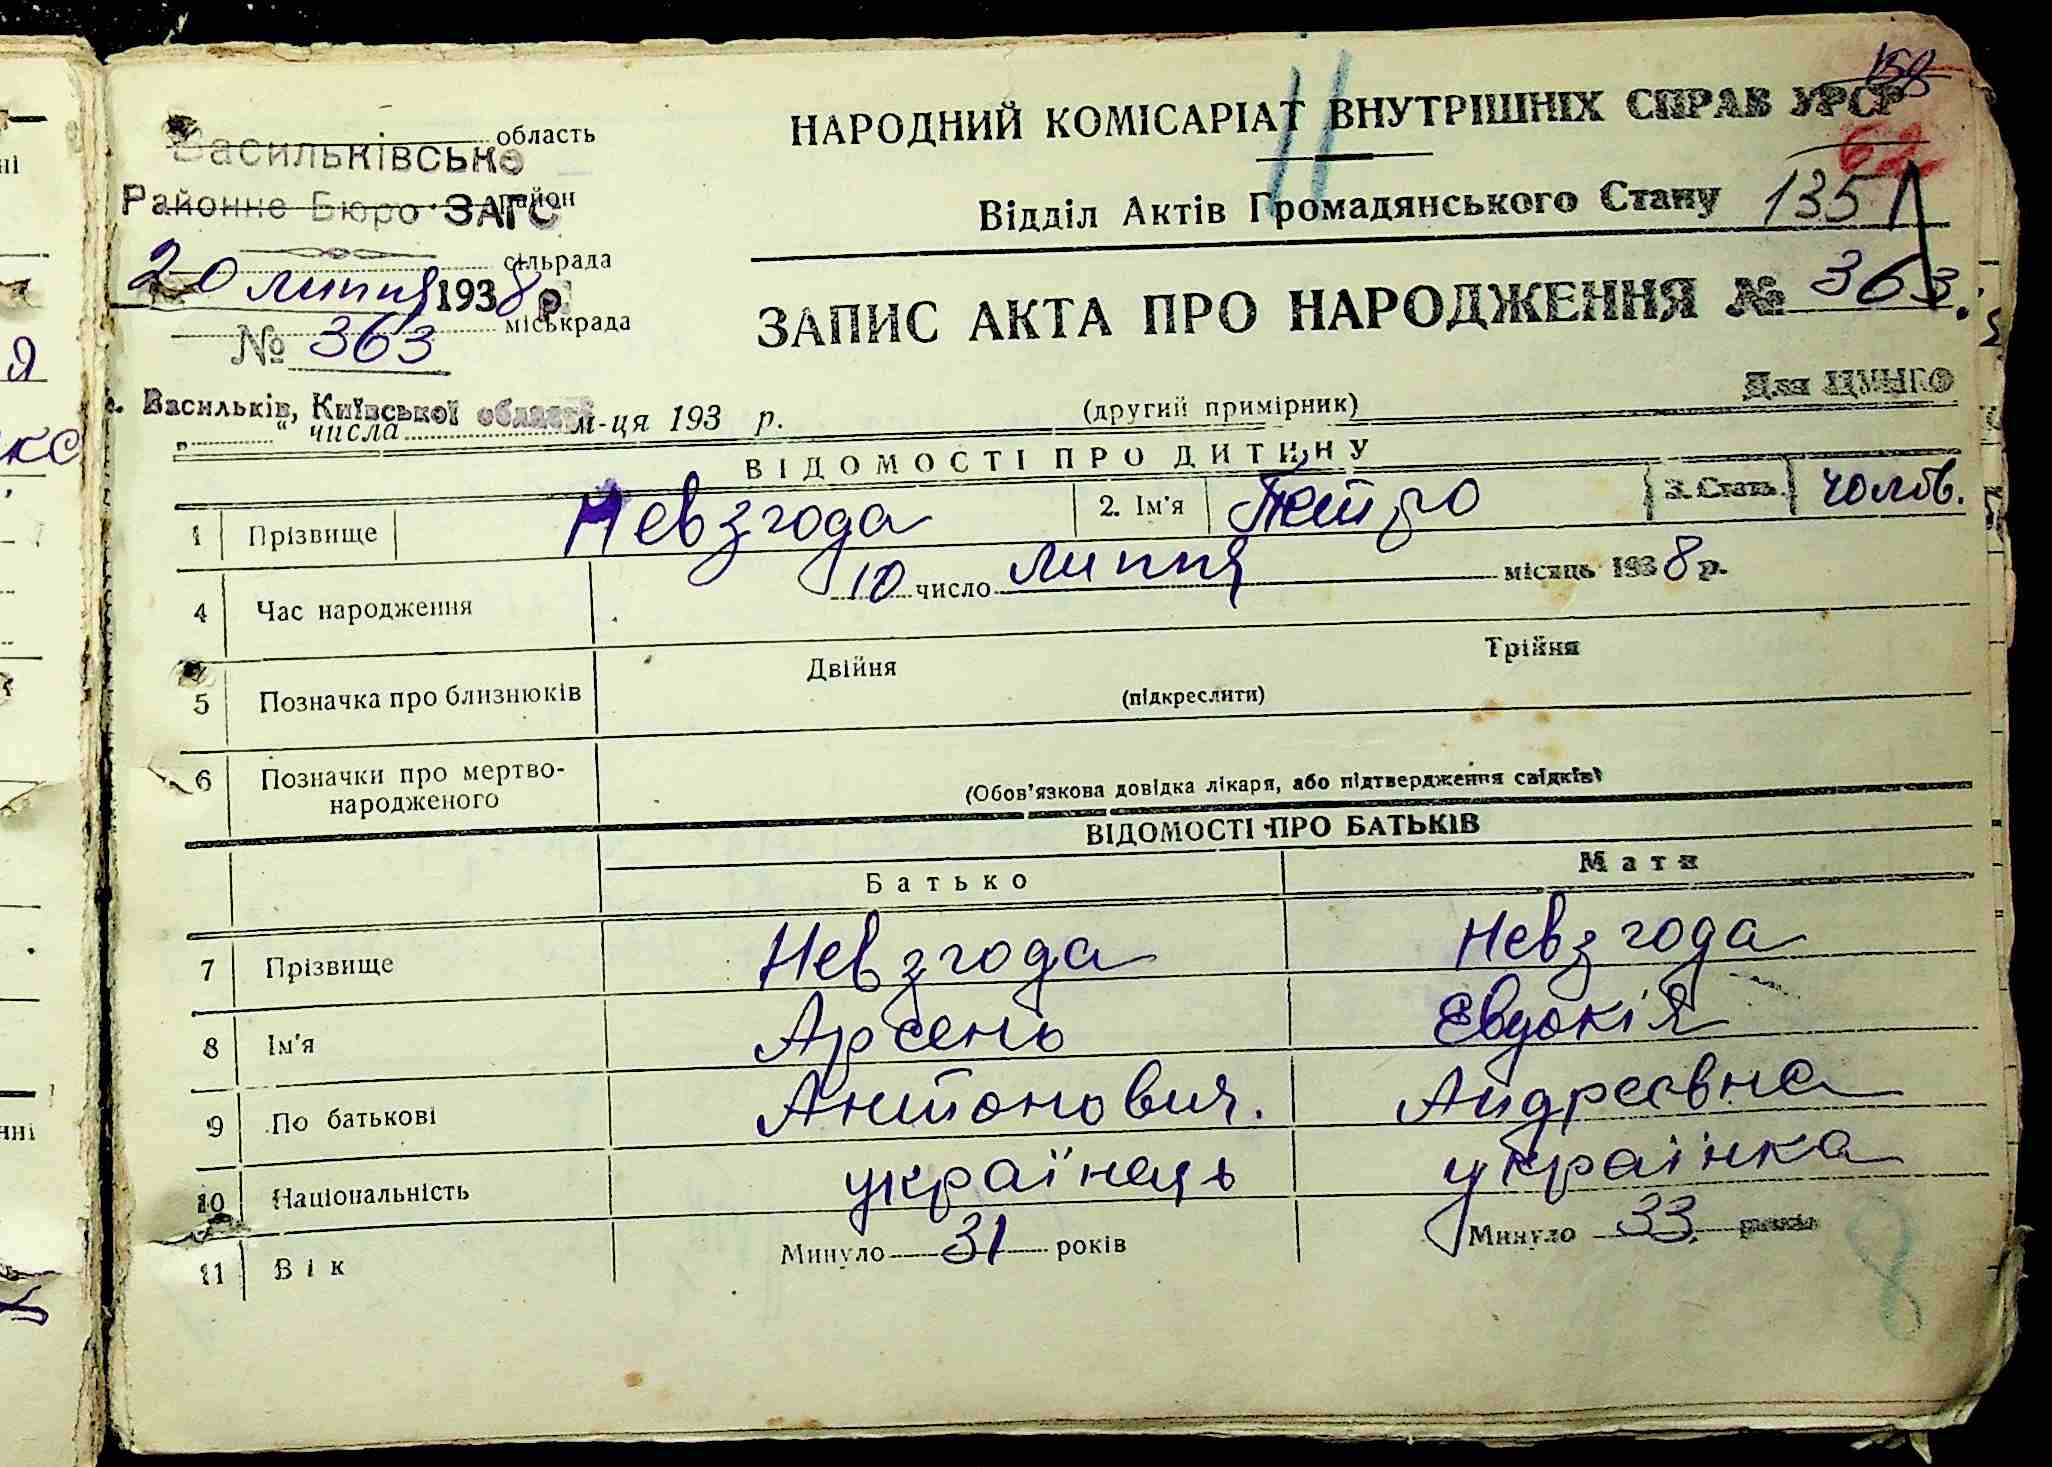 158
НАРОДНИЙ КОМІСАРІАТ ВНУТРІШНІХ СПРАВ УРСР
62
Відділ Актів Громадянського Стану 1351
область
Васильківське
район
Районне Бюро ЗАГС
сільрада
20 липня 1938 р.
міськрада
№ 363
м. Васильків, Київської області
„ “ числа м-ця 193 р.
11
ЗАПИС АКТА ПРО НАРОДЖЕННЯ № 363.
(другий примірник)
Для ЦУНГО
ВІДОМОСТІ ПРО ДИТИНУ
1 Прізвище Невзгода 2. Ім'я Петро 3. Стать чолов.
4 Час народження 10 число липня місяць 1938 р.
5 Позначка про близнюків Двійня Трійня
(підкреслити)
6 Позначки про мертво-
народженого (Обов'язкова довідка лікаря, або підтвердження свідків)
ВІДОМОСТІ ПРО БАТЬКІВ
Батько Мати
7 Прізвище Невзгода Невзгода
8 Ім'я Арсень Євдокія
9 По батькові Антонович. Андреєвна
10 Національність українець українка
11 Вік Минуло 31 років Минуло 33 років
8